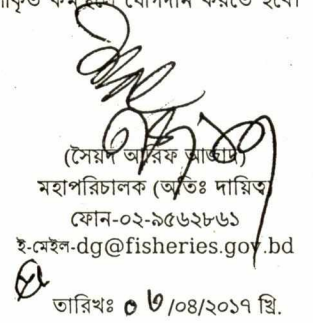 কর্মস্থলে যোগদান করতে হবে।
(সৈয়দ আরিফ আজাদ)
মহাপরিচালক (অতিঃ দায়িত্ব)
ফোন-০২-৯৫৬২৮৬১
ই-মেইল-dg@fisheries.gov.bd
তারিখঃ ০৬/০৪/২০১৭ খ্রি.